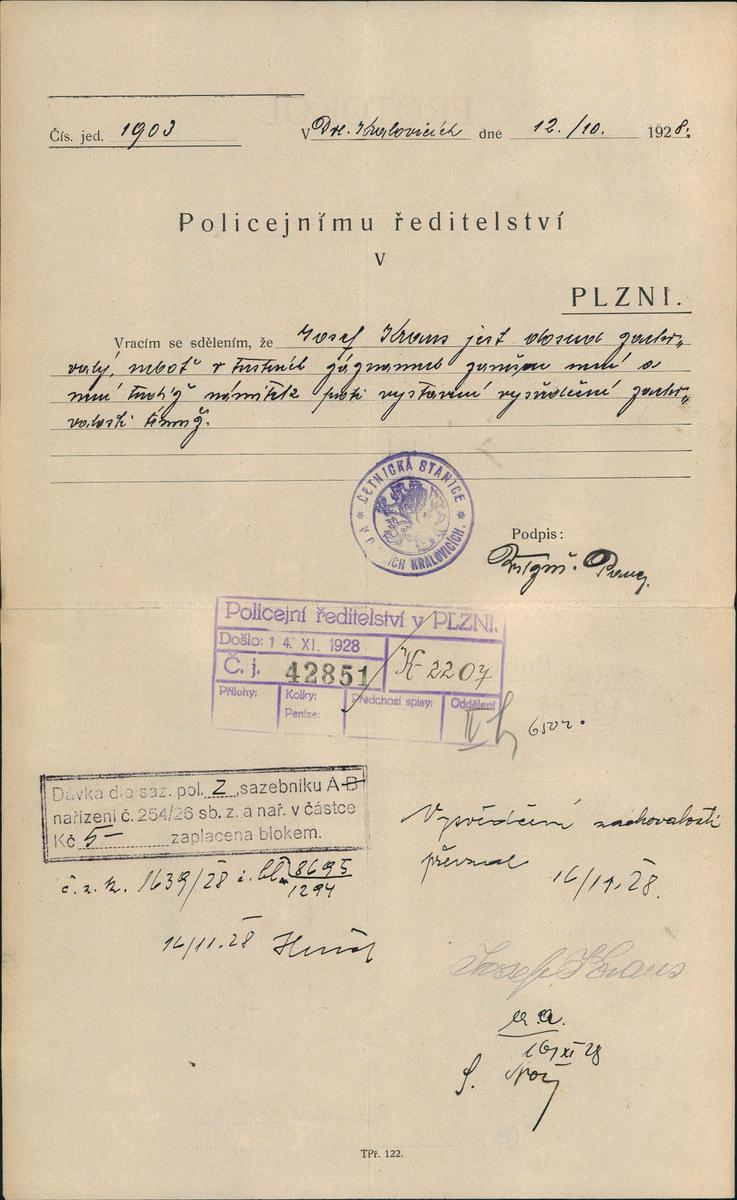 Čís. jed. 1903 V Dol. Kralovicích dne 12./10. 1928.
Policejnímu ředitelství
v
PLZNI.
Vracím se sdělením, že Josef Kraus jest dosud zacho-
valý, neboť v trestních záznamech není a
není námitek proti vystavení vysvědčení zacho-
valosti
ČETNICKÁ STANICE
KRALOVICÍCH.
Podpis:
Policejní ředitelství v PLZNI.
Došlo: 14. XI. 1928
Č. j. 42851 K-2204
Přílohy: Kolky: Peníze: Předchozí spisy: Oddělení
Dávka dle saz. pol. 2 sazebníku A-B
nařízení č. 254/26 sb. z. a nař. v částce
Kč 5- zaplacena blokem.
Vysvědčení zachovalosti
převzal 16/11.28.
č. z. k. 1639/28 č. bl. 8695
1294
16/11.28
Josef Kraus
a. a.
16/XI 28
TPř. 122.